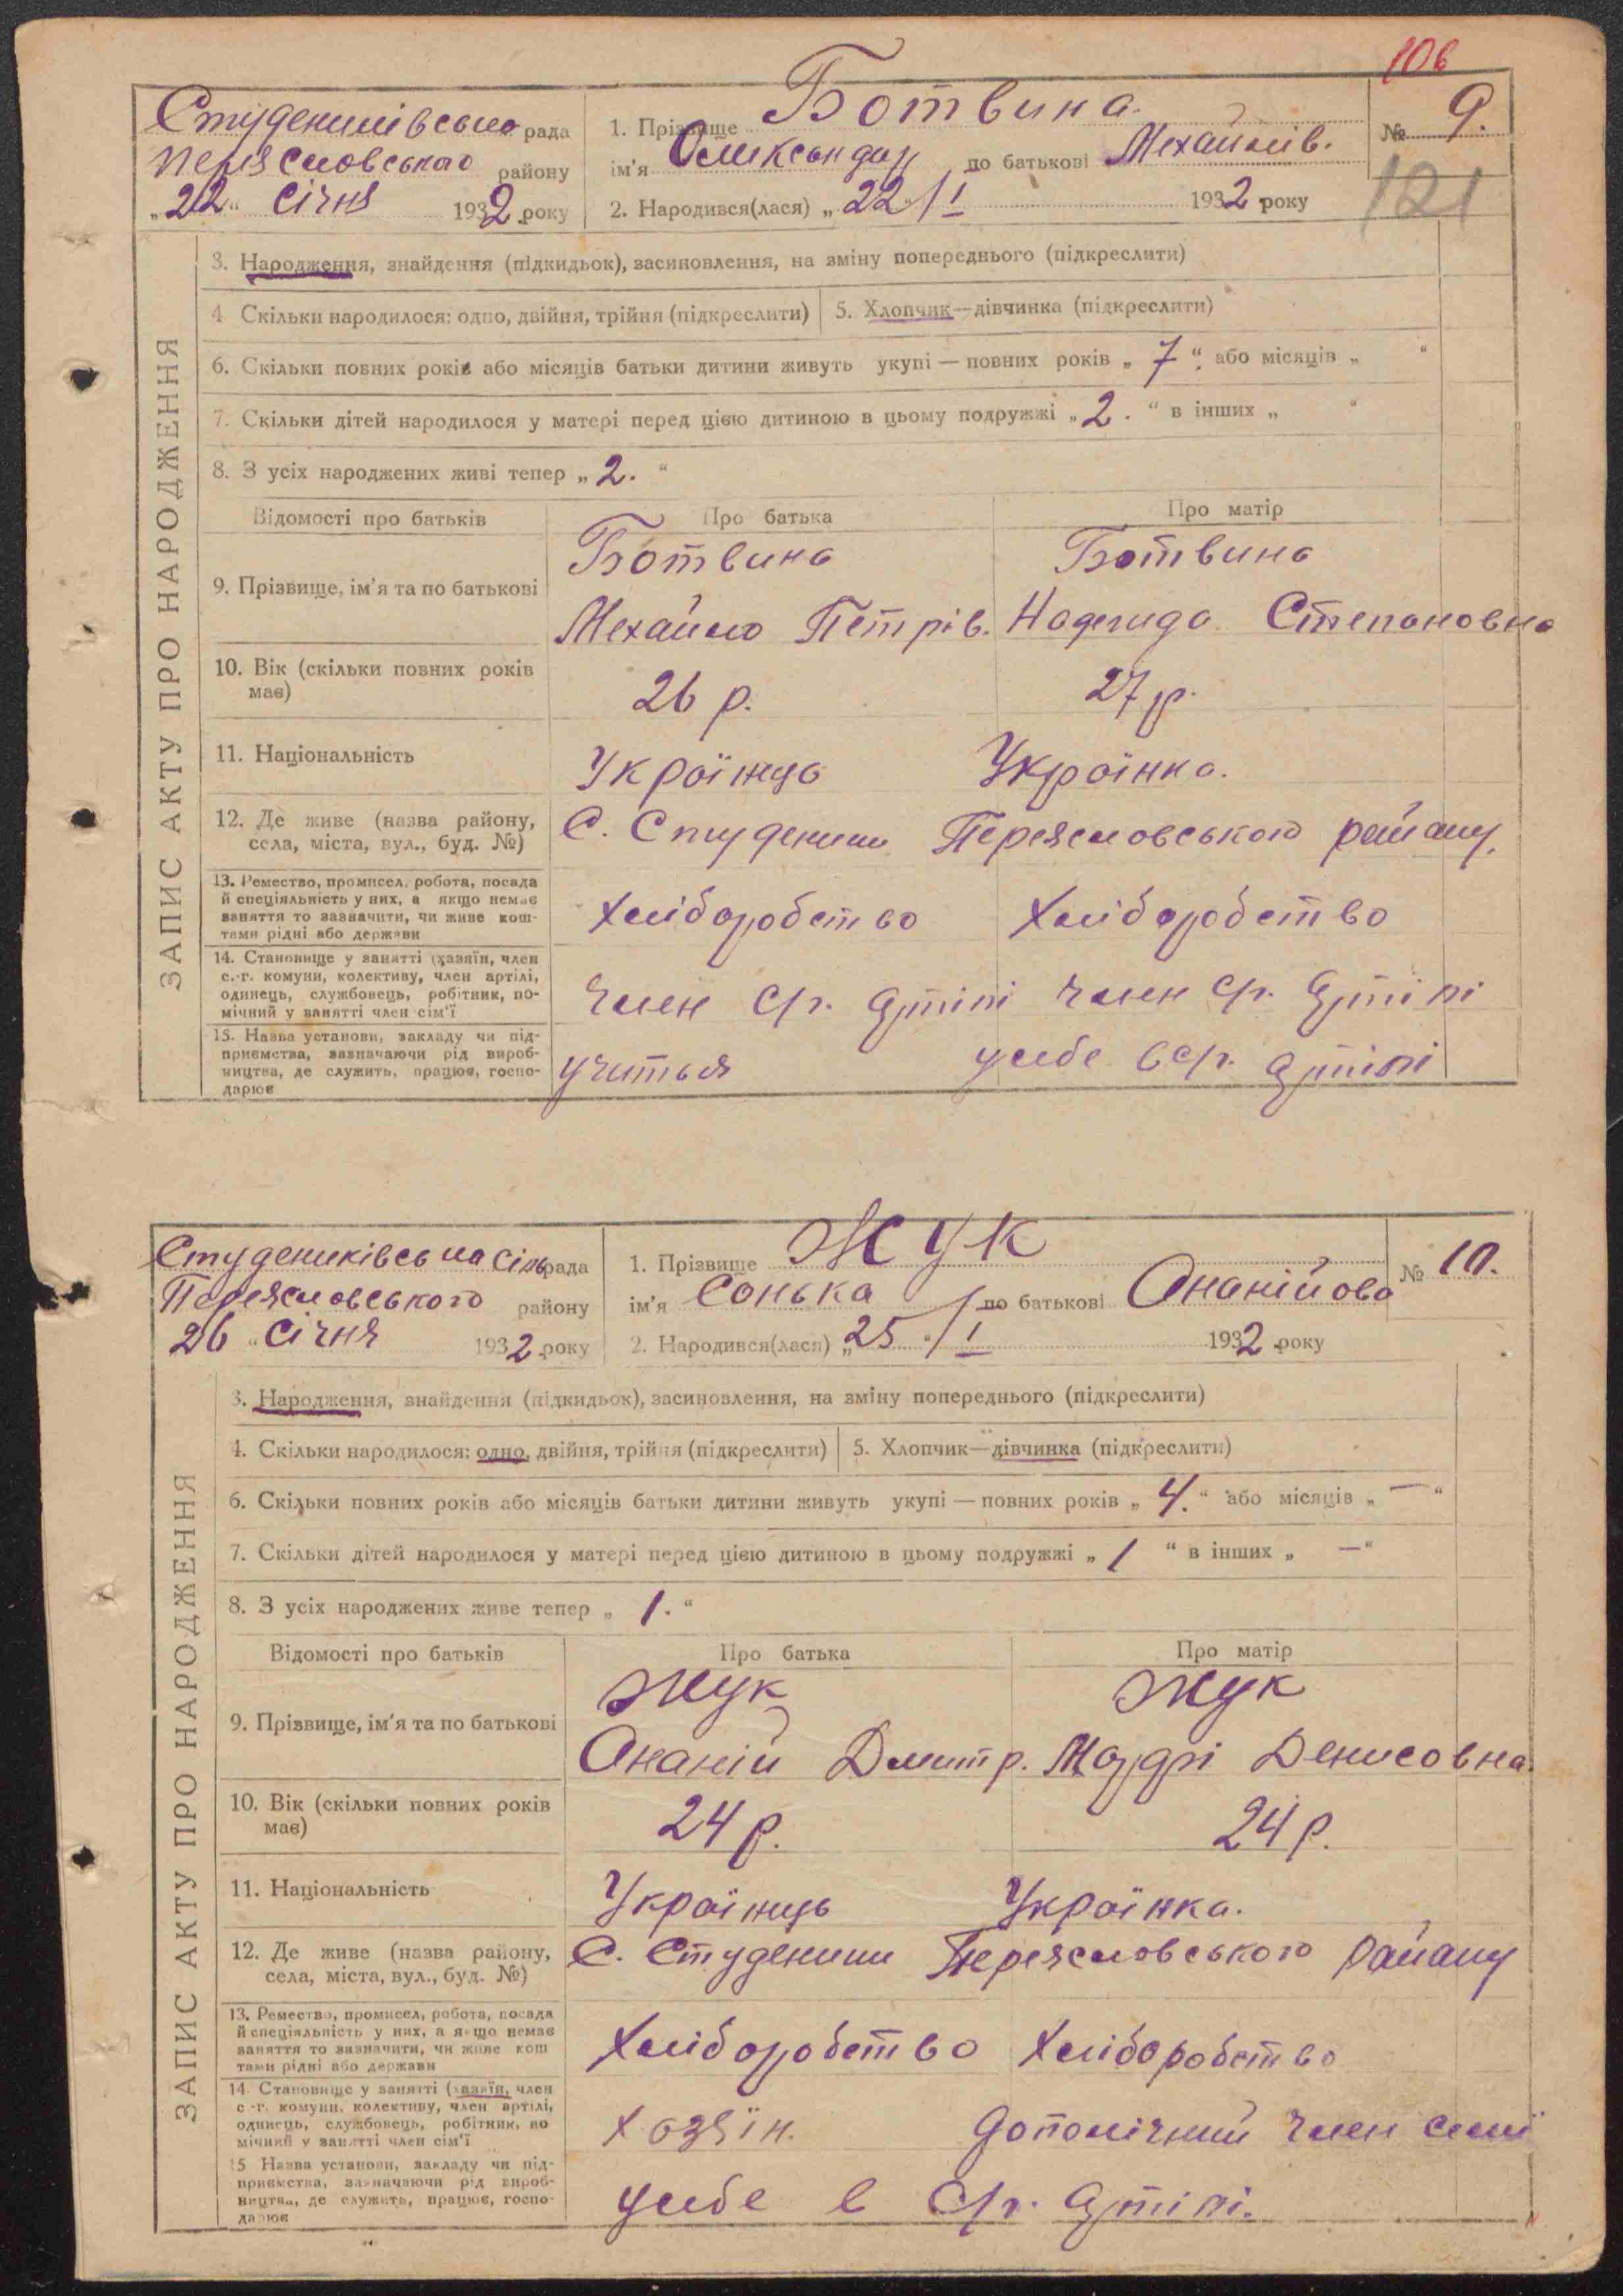 106
Студениківська рада
Переяславського району
„22“ Січня 1932 року
1. Прізвище Ботвина.
ім'я Олександр по батькові Михайлів.
2. Народився(лася) „22“/I 1932 року
№ 9.
121
ЗАПИС АКТУ ПРО НАРОДЖЕННЯ
3. Народження, знайдення (підкидьок), засиновлення, на зміну попереднього (підкреслити)
4 Скільки народилося: одно, двійня, трійня (підкреслити)
5. Хлопчик—дівчинка (підкреслити)
6. Скільки повних років або місяців батьки дитини живуть укупі — повних років „ 7 “ або місяців „ “
7. Скільки дітей народилося у матері перед цією дитиною в цьому подружжі „ 2. “ в інших „ “
8. З усіх народжених живі тепер „ 2. “
Відомості про батьків
Про батька
Про матір
9. Прізвище, ім'я та по батькові
Ботвина
Ботвина
Михайло Петрів.
Надежда Степановна
10. Вік (скільки повних років
має)
26 р.
27 р.
11. Національність
Українць
Українка.
12. Де живе (назва району,
села, міста, вул., буд. №)
С. Студеники Переяславського району.
13. Ремество, промисел, робота, посада
й спеціяльність у них, а якщо немає
заняття то зазначити, чи живе кош-
тами рідні або держави
Хліборобство
Хліборобство
14. Становище у занятті (хазяїн, член
с.-г. комуни, колективу, член артілі,
одинець, службовець, робітник, по-
мічний у занятті член сім'ї
Член С/г. Артілі
Член С/г. Артілі
15. Назва установи, закладу чи під-
приємства, зазначаючи рід вироб-
ництва, де служить, працює, госпо-
дарює
учиться
у себе в С/г. Артілі
Студениківська сільрада
Переяславського району
26 “ Січня 1932 року
1. Прізвище Жук
ім'я Сонька по батькові Ананійова
2. Народився(лася) „25“/I 1932 року
№ 10.
ЗАПИС АКТУ ПРО НАРОДЖЕННЯ
3. Народження, знайдення (підкидьок), засиновлення, на зміну попереднього (підкреслити)
4. Скільки народилося: одно, двійня, трійня (підкреслити)
5. Хлопчик—дівчинка (підкреслити)
6. Скільки повних років або місяців батьки дитини живуть укупі — повних років „ 4. “ або місяців „ — “
7. Скільки дітей народилося у матері перед цією дитиною в цьому подружжі „ 1 “ в інших „ — “
8. З усіх народжених живе тепер „ 1. “
Відомості про батьків
Про батька
Про матір
9. Прізвище, ім'я та по батькові
Жук
Жук
Ананій Дмитр.
Денисовна
10. Вік (скільки повних років
має)
24 р.
24 р.
11. Національність
Українць
Українка.
12. Де живе (назва району,
села, міста, вул., буд. №)
С. Студеники Переяславського району
13. Ремество, промисел, робота, посада
й спеціяльність у них, а якщо немає
заняття то зазначити, чи живе кош
тами рідні або держави
Хліборобство
Хліборобство
14. Становище у занятті (хазяїн, член
с.-г. комуни, колективу, член артілі,
одинець, службовець, робітник, по
мічний у занятті член сім'ї
Хозяїн.
Допомічний член семї
15 Назва установи, закладу чи під-
приємства, зазначаючи рід вироб-
ництва, де служить, працює, госпо-
дарює
у себе в С/г. Артілі.